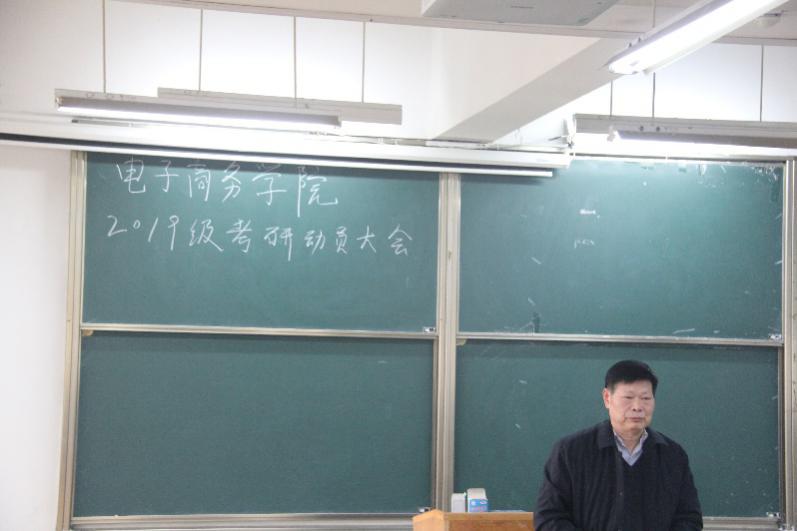 电子商务学院
2019级考研动员大会